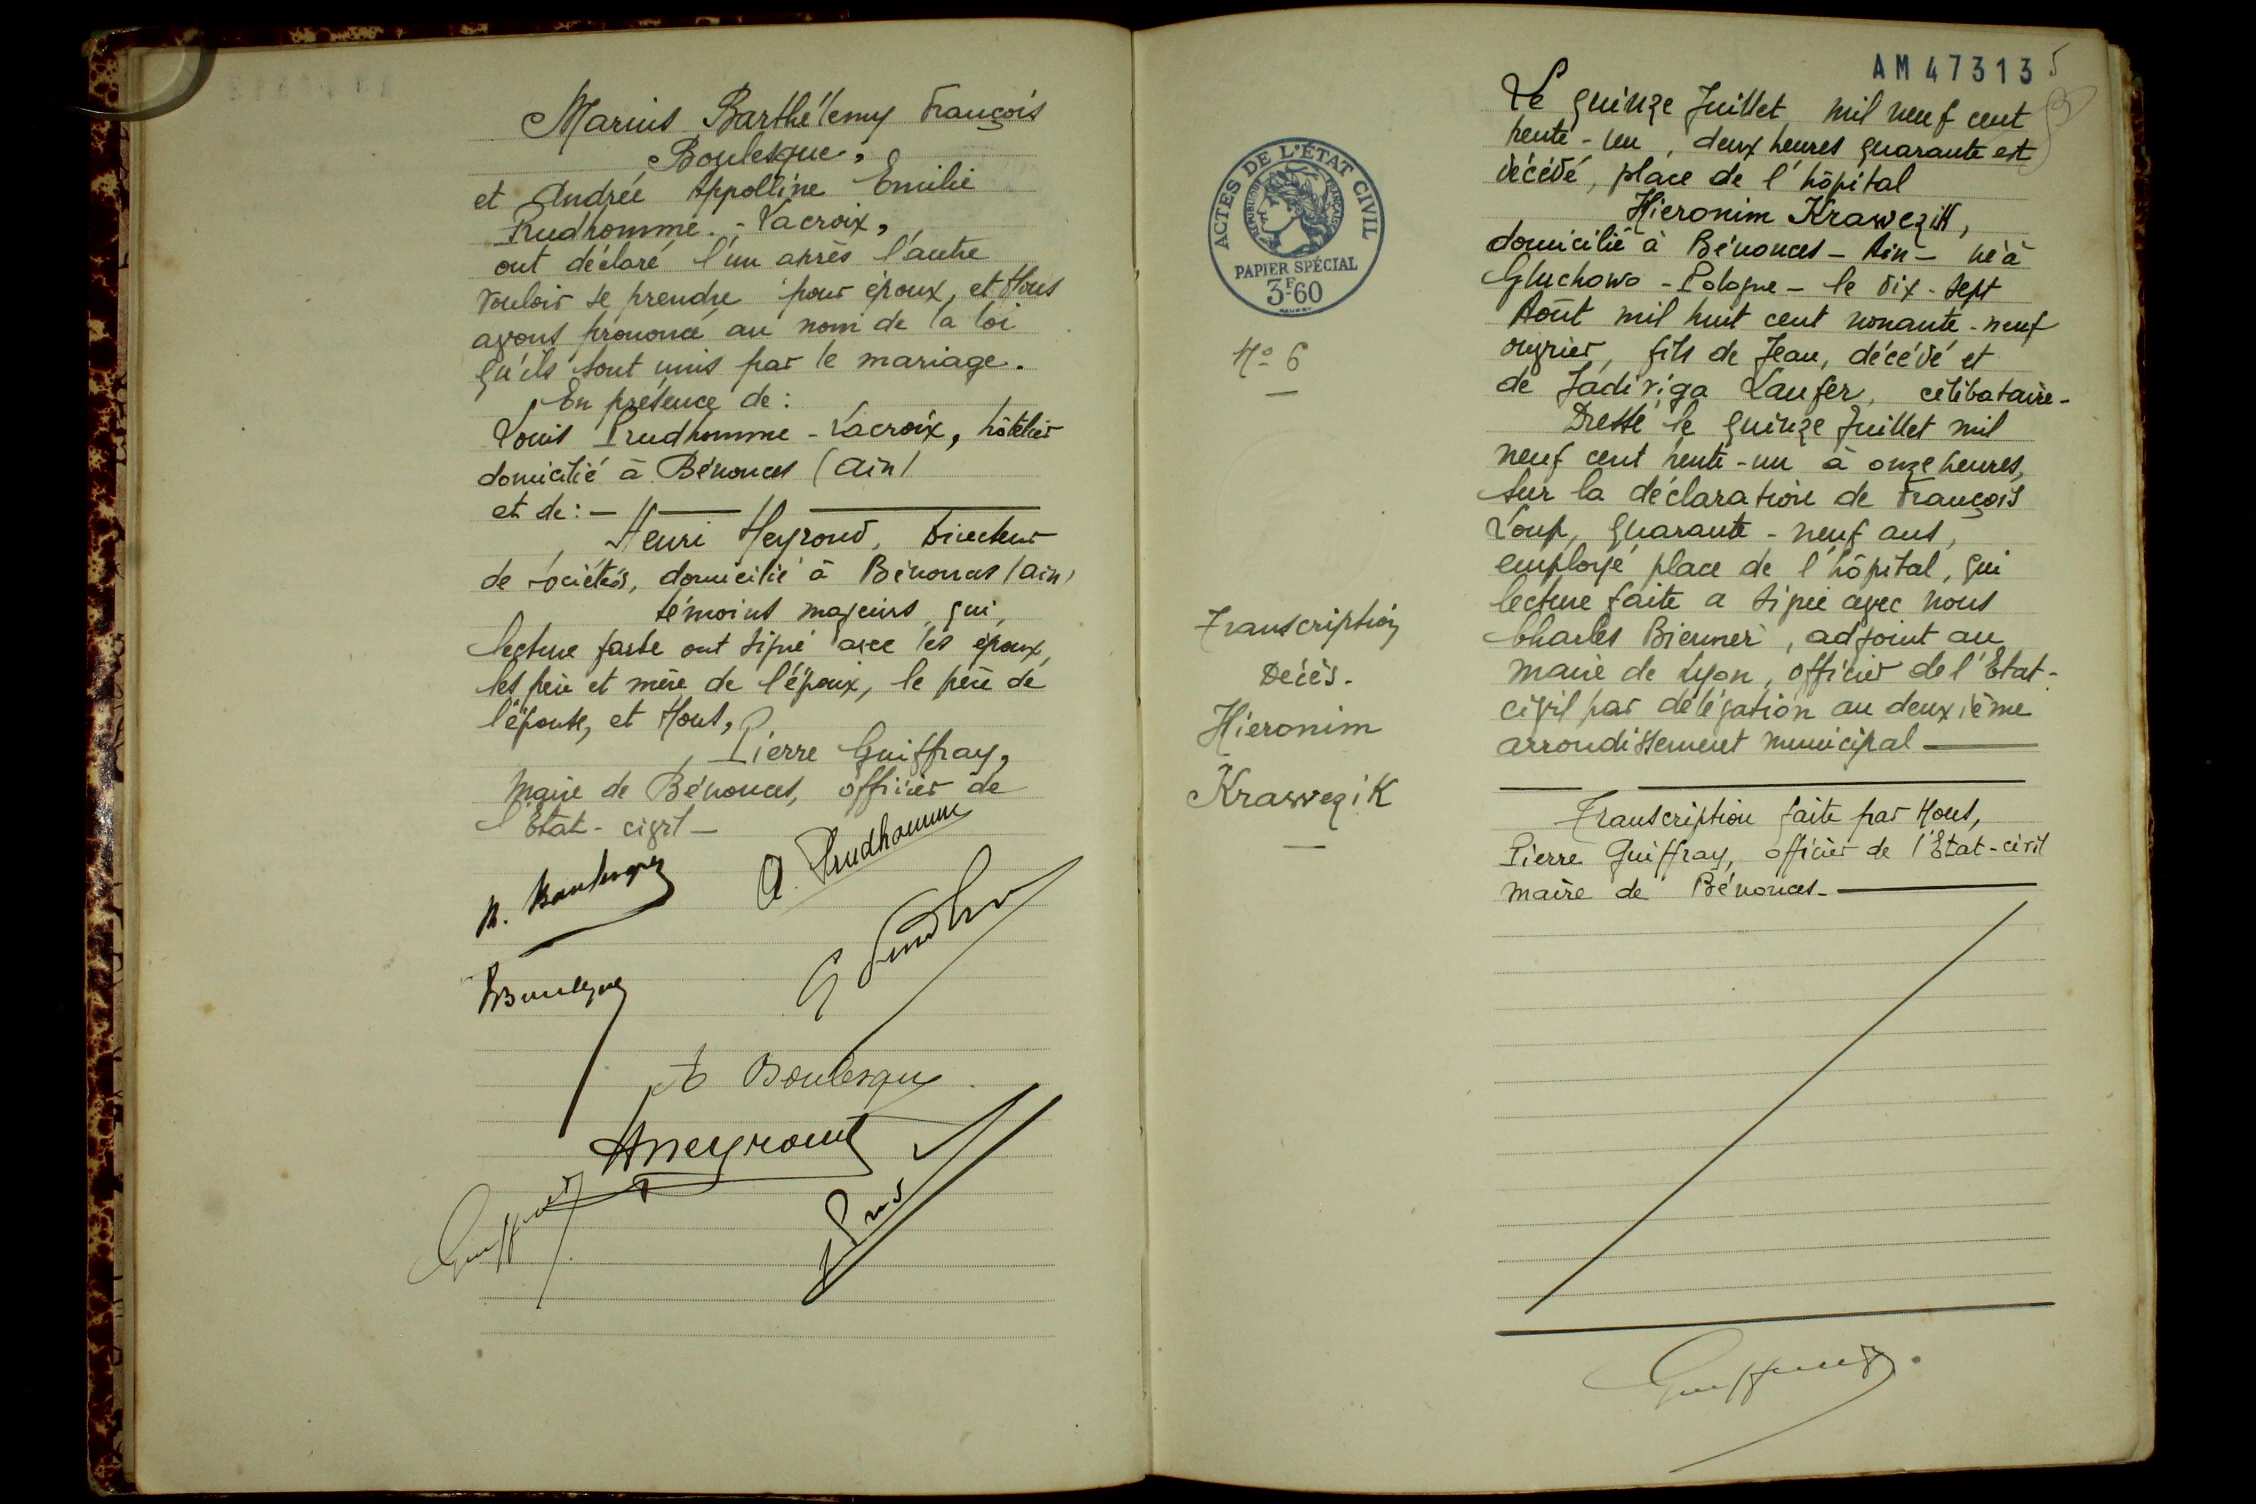 Marius Barthélemy François
Boulesque,
et Andrée Appolline Emilie
Prudhomme - Lacroix,
ont déclaré l'un après l'autre
vouloir se prendre pour époux, et Nous
avons prononcé au nom de la loi
qu'ils sont unis par le mariage.
En présence de :
Louis Prudhomme - Lacroix, hôtelier
domicilié à Bénonces (Ain)
et de : —
Henri Meyroud, Directeur
de sociétés, domicilié à Bénonces (Ain)
témoins majeurs qui,
lecture faite ont signé avec les époux,
les père et mère de l'époux, le père de
l'épouse, et Nous,
Pierre Guiffray,
Maire de Bénonces, officier de
l'Etat - civil —
A. Prudhomme
M. Boulesque
Boulesque
Boulesque
HMeyroud
Guiffray
ACTES DE L'ÉTAT CIVIL
RÉPUBLIQUE FRANÇAISE
PAPIER SPÉCIAL
3F60
N° 6
Transcription
Décès -
Hieronim
Krawezik
AM 47313
5
Le quinze Juillet mil neuf cent
trente - un, deux heures quarante est
décédé, place de l'hôpital
Hieronim Krawezik,
domicilié à Bénonces - Ain - né à
Gluchowo - Pologne - le dix - sept
Août mil huit cent nonante - neuf
ouvrier, fils de Jean, décédé et
de Jadiviga Laufer, célibataire -
Dressé le quinze Juillet mil
neuf cent trente - un à onze heures,
sur la déclaration de François
Loup, quarante - neuf ans,
employé place de l'hôpital, qui
lecture faite a signé avec nous
Charles Bienner, adjoint au
maire de Lyon, officier de l'Etat -
civil par délégation au deuxième
arrondissement municipal —
Transcription faite par Nous,
Pierre Guiffray, officier de l'Etat - civil
maire de Bénonces -
Guiffray